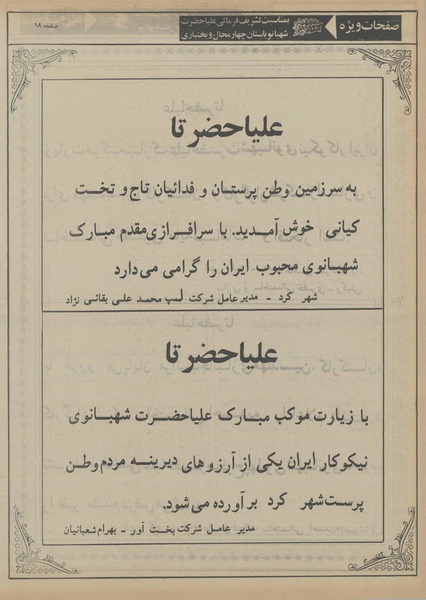 صفحات ویژه
بمناسبت تشریف فرمائی علیاحضرت
شهبانو باستان چهارمحال و بختیاری
صفحه ۹۸
علیاحضرتا
به سرزمین وطن پرستان و فدائیان تاج و تخت
کیانی خوش آمدید. با سرافرازی مقدم مبارک
شهبانوی محبوب ایران را گرامی می‌دارد
شهر کرد - مدیر عامل شرکت لمپ محمد علی بقائی نژاد
علیاحضرتا
با زیارت موکب مبارک علیاحضرت شهبانوی
نیکوکار ایران یکی از آرزوهای دیرینه مردم وطن
پرست شهر کرد برآورده می‌شود.
مدیر عامل شرکت بخت آور - بهرام شعبانیان